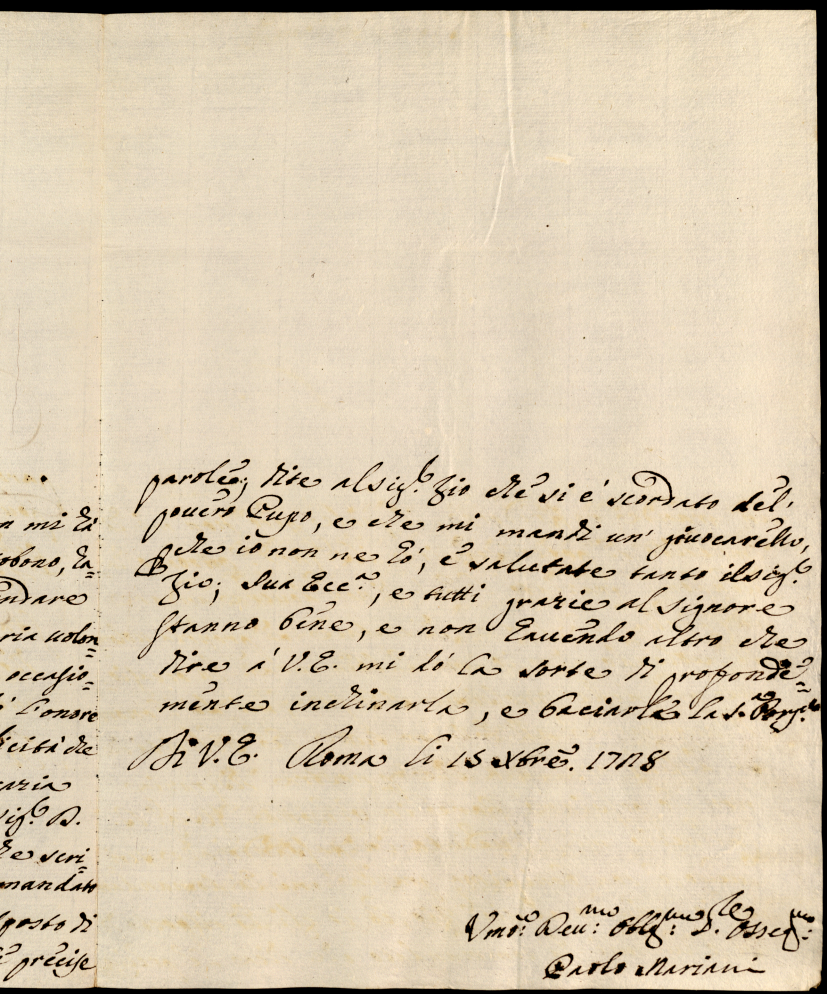 n mi hà
obono, ha-
andare
ria uolon-
occasio-
l'onore
licità che
caria
sig.r D.
che scri-
mandato
sposto di
precise
parole; dite al sig.r Zio che si è scordato del'
pouero Pupo, e che mi mandi un' giuocarello,
che io non ne hò, e salutate tanto il sig.r
Zio; Sua Ecc.a, e tutti grazie al Signore
stanno bene, e non hauendo altro che
dire à V.E. mi dò la sorte di profonde-
mente inchinarla, e baciarla la s.a
Di V.E. Roma li 15 Xbre. 1728
Vmo: Deu:mo Obblg:mo S.re Osseq:mo
Paolo Mariani